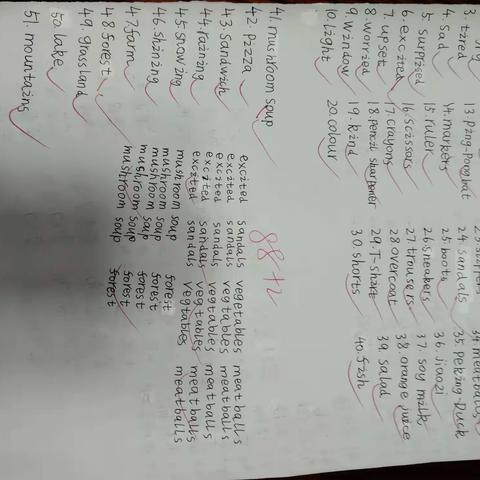 3. tired
4. sad
5. surprised
6. excited
7. upset
8. worried
9. window
10. light
13. Ping-Pong bat
14. markers
15. ruler
16. scissors
17. crayons
18. pencil sharpener
19. kind
20. colour
24. sandals
25. boots
26. sneakers
27. trousers
28 overcoat
29. T-shirt
30. shorts
34. meatballs
35. Peking Duck
36. jiaozi
37. soy milk
38. orange juice
39. salad
40. fish
41. mushroom soup
42. pizza
43. sandwich
44. raining
45. snowing
46. shining
47. farm
48. forest
49. grassland
50. lake
51. mountains
88+2
excited sandals vegetables meatballs
excited sandals vegtables meatballs
excited sandals vegtables meatballs
excited sandals vegtables meatballs
excited sandals vegtables meatballs
mushroom soup forest
mushroom soup forest
mushroom soup forest
mushroom soup forest
mushroom soup forest